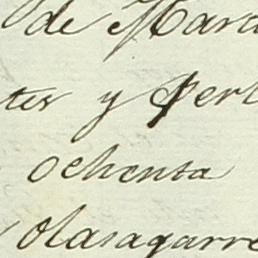 de Marc
tes y Perl
ochenta
olasagarre